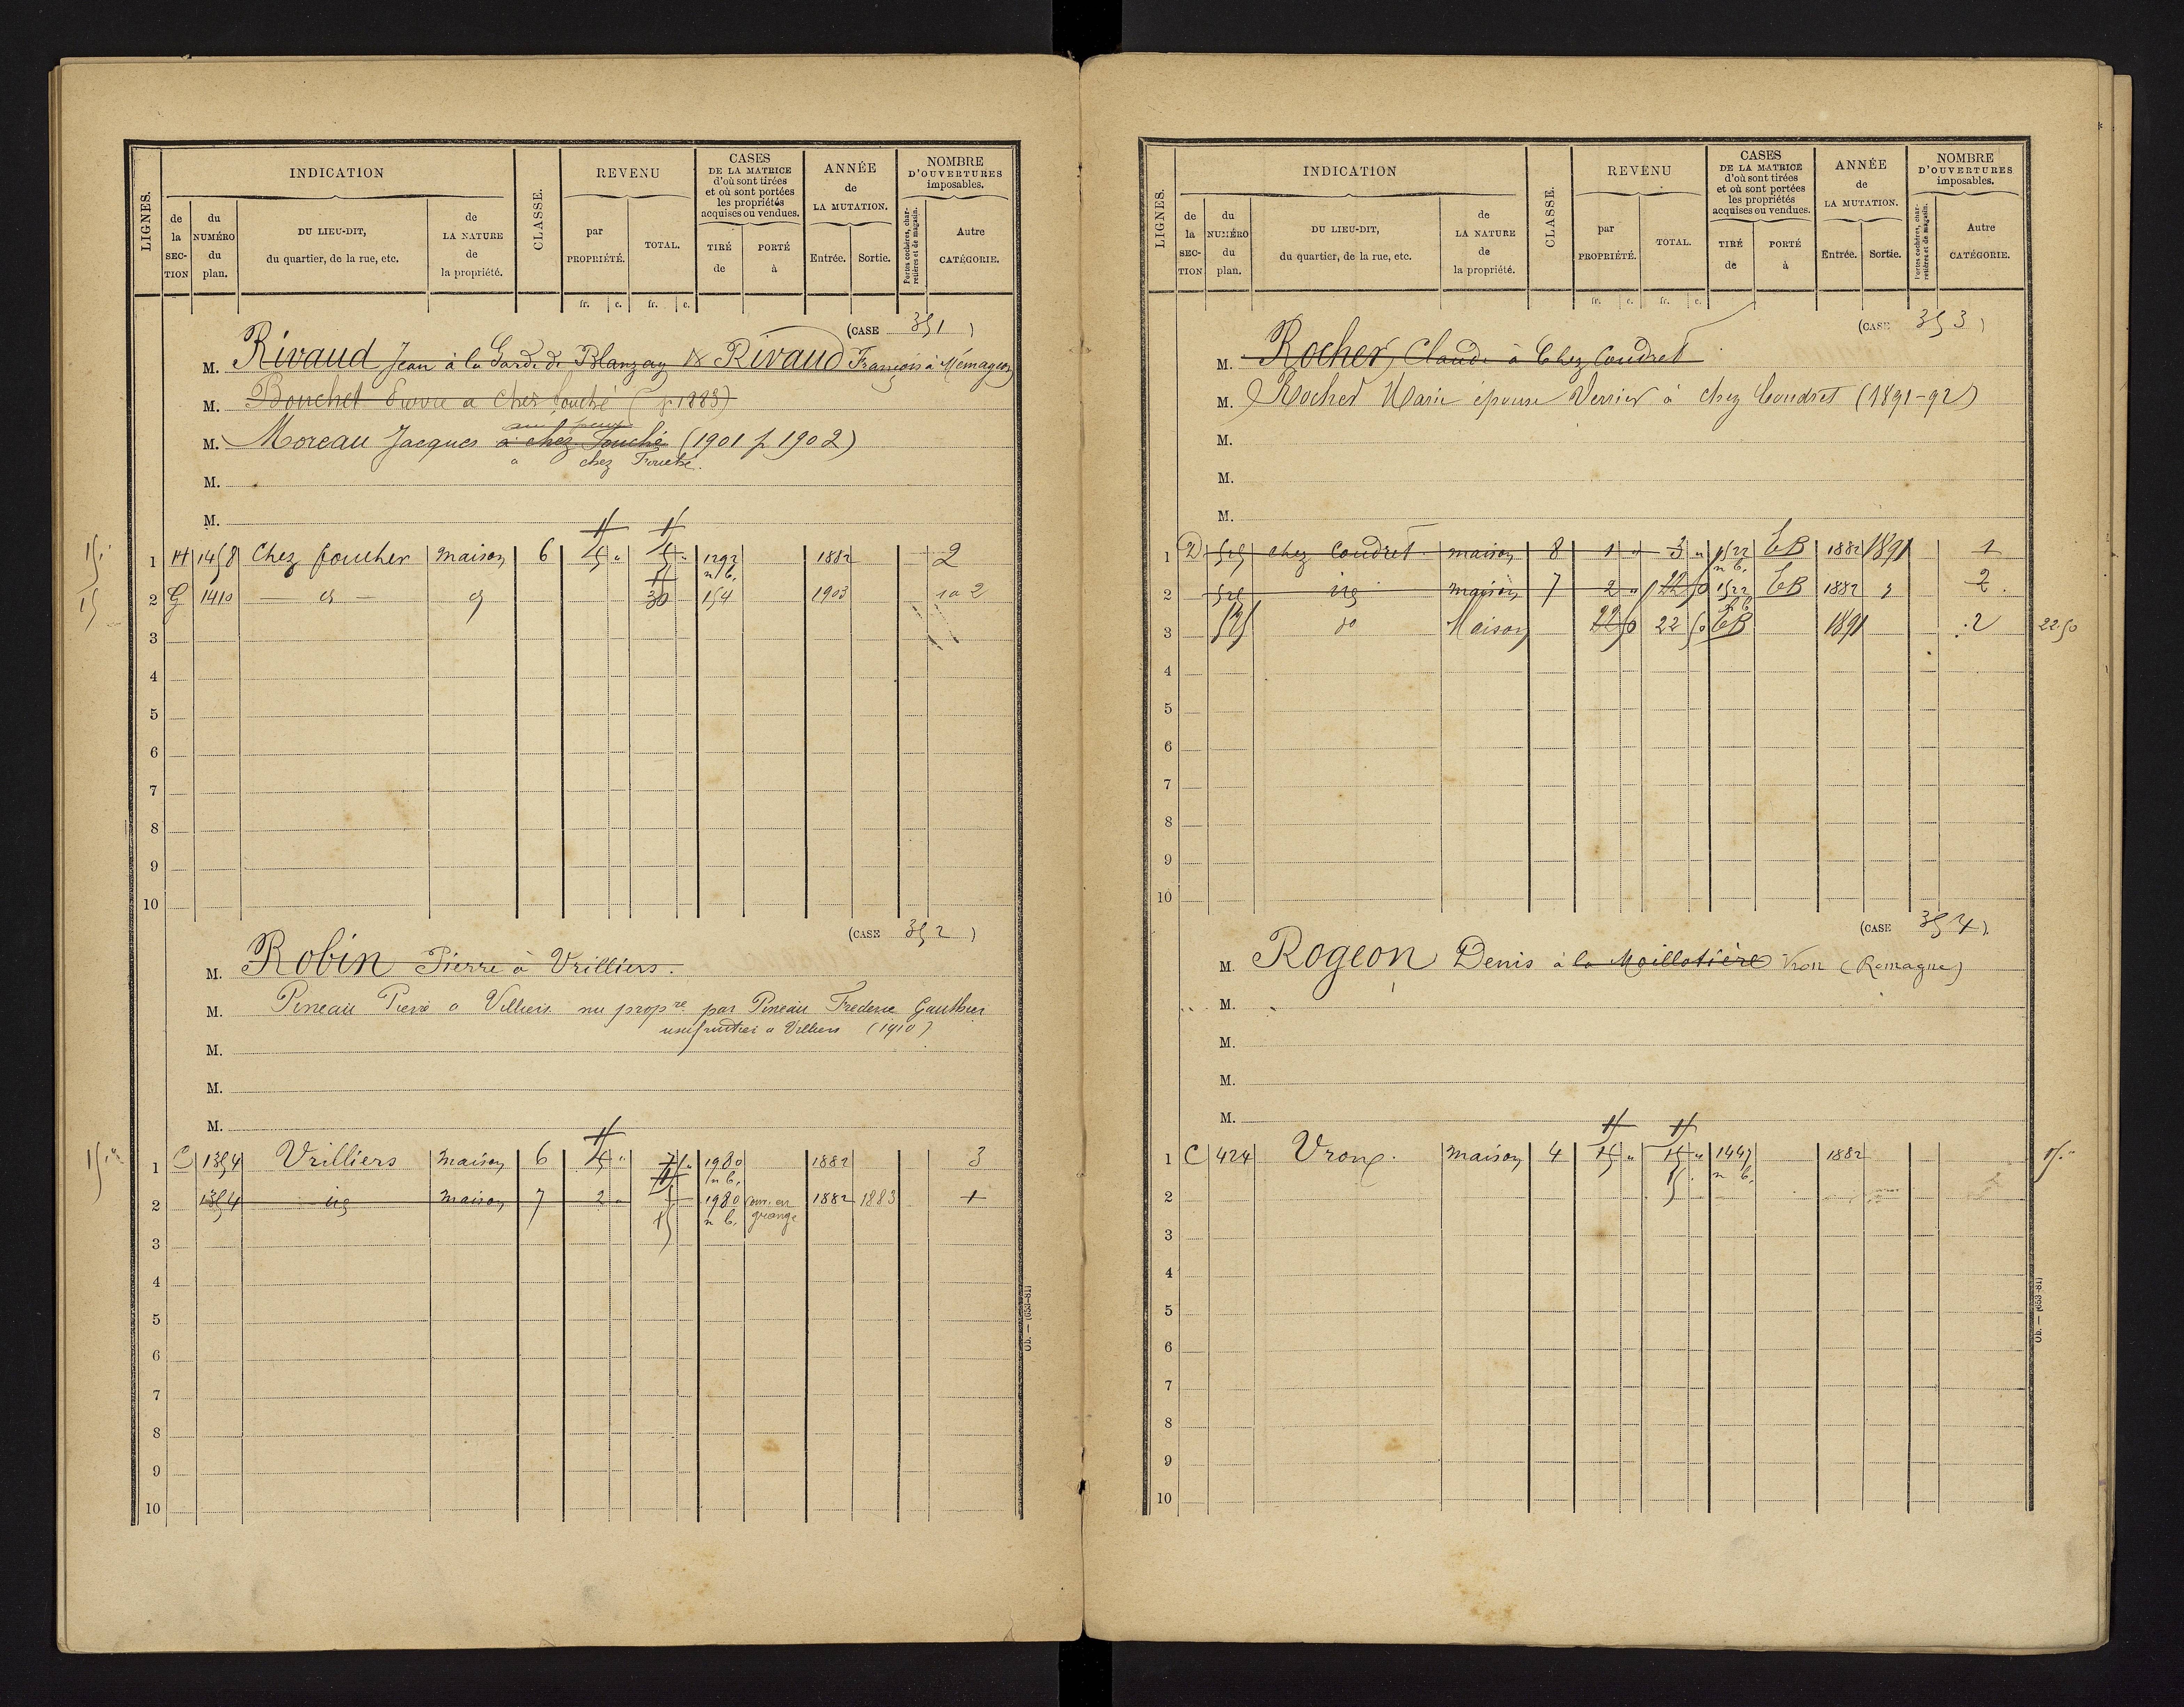 LIGNES. INDICATION CLASSE. REVENU CASES DE LA MATRICE d'où sont tirées et où sont portées les propriétés acquises ou vendues. ANNÉE de LA MUTATION. NOMBRE D'OUVERTURES imposables.
de la SECTION du NUMÉRO du plan. DU LIEU-DIT, du quartier, de la rue, etc. de LA NATURE de la propriété. par PROPRIÉTÉ. TOTAL. TIRÉ de PORTÉ à Entrée. Sortie. Portes cochères, charretières et de magasin. Autre CATÉGORIE.
fr. c. fr. c.
(CASE 351)
M. Rivaud Jean à la Garde de Blanzay & Rivaud François à Mémageon
M. Bouchet à chez fouché (p 1883)
M. Moreau Jacques à chez Fouché (1901 p 1902)
a chez Fouché.
M.
M.
1 H 1458 Chez foucher maison 6 1292 n b. 1882 2
2 G 1410 30 154 1903 2
3
4
5
6
7
8
9
10
(CASE 352)
M. Robin Pierre à Vrilliers.
M. Pineau Pierre a Villiers nu prop.re par Pineau Frederic Gauthier
usufruitier a Villiers (1910)
M.
M.
M.
1 C 1354 Vrilliers maison 6 1980 n b. 1882 3
2 1354 maison 7 2 " 1980 n b. conv. en grange 1882 1883 1
3
4
5
6
7
8
9
10
Ob. — (653-81)
LIGNES. INDICATION CLASSE. REVENU CASES DE LA MATRICE d'où sont tirées et où sont portées les propriétés acquises ou vendues. ANNÉE de LA MUTATION. NOMBRE D'OUVERTURES imposables.
de la SECTION du NUMÉRO du plan. DU LIEU-DIT, du quartier, de la rue, etc. de LA NATURE de la propriété. par PROPRIÉTÉ. TOTAL. TIRÉ de PORTÉ à Entrée. Sortie. Portes cochères, charretières et de magasin. Autre CATÉGORIE.
fr. c. fr. c.
(CASE 353)
M. Rocher, Claude à Chez Coudret
M. Rocher Marie épouse Verrier à chez Coudret (1891-92)
M.
M.
M.
1 D 525 chez Coudret maison 8 1 " 3 " 1522 n b. CB 1882 1891 1
2 525 maison 7 2 " 1522 CB 1882 2
3 525 do Maison 22 50 22 50 CB 1891 2 22.50
4
5
6
7
8
9
10
(CASE 354)
M. Rogeon Denis à la Maillotière Vron (Romagne)
M.
M.
M.
M.
1 C 424 Vrong. maison 4 15 " 15 " 1447 n b. 1882 15.
2
3
4
5
6
7
8
9
10
Ob. — (653-81)